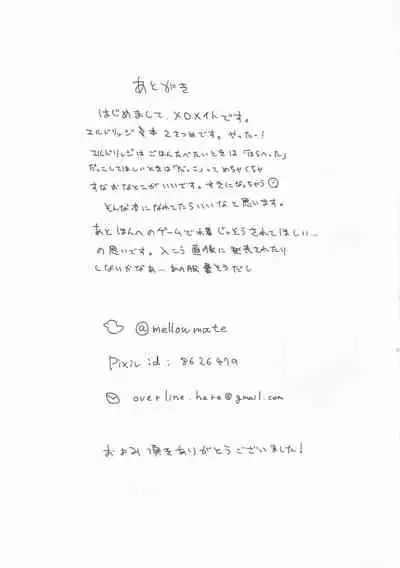 あとがき
はじめまして、メロメイトです。
エルドリッジ本2さつめです。やったー!
エルドリッジはごはんたべたいときは「はらへった」
だっこしてほしいときは「だっこ」ってめちゃくちゃ
すなおなとこがいいです。すきになっちゃう
そんな本になれてたらいいなと思います。
あと ほんへのゲームで水着じっそうされてほしい…
の思いです。入こう直後に発表されたり
しないかなぁ… 服きそうだし
@mellowmate
Pixiv id: 8626479
overline.here@gmail.com
およみ頂きありがとうございました!